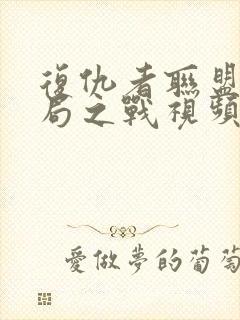 復仇者聯盟
局之戰視頻
愛做夢的葡萄